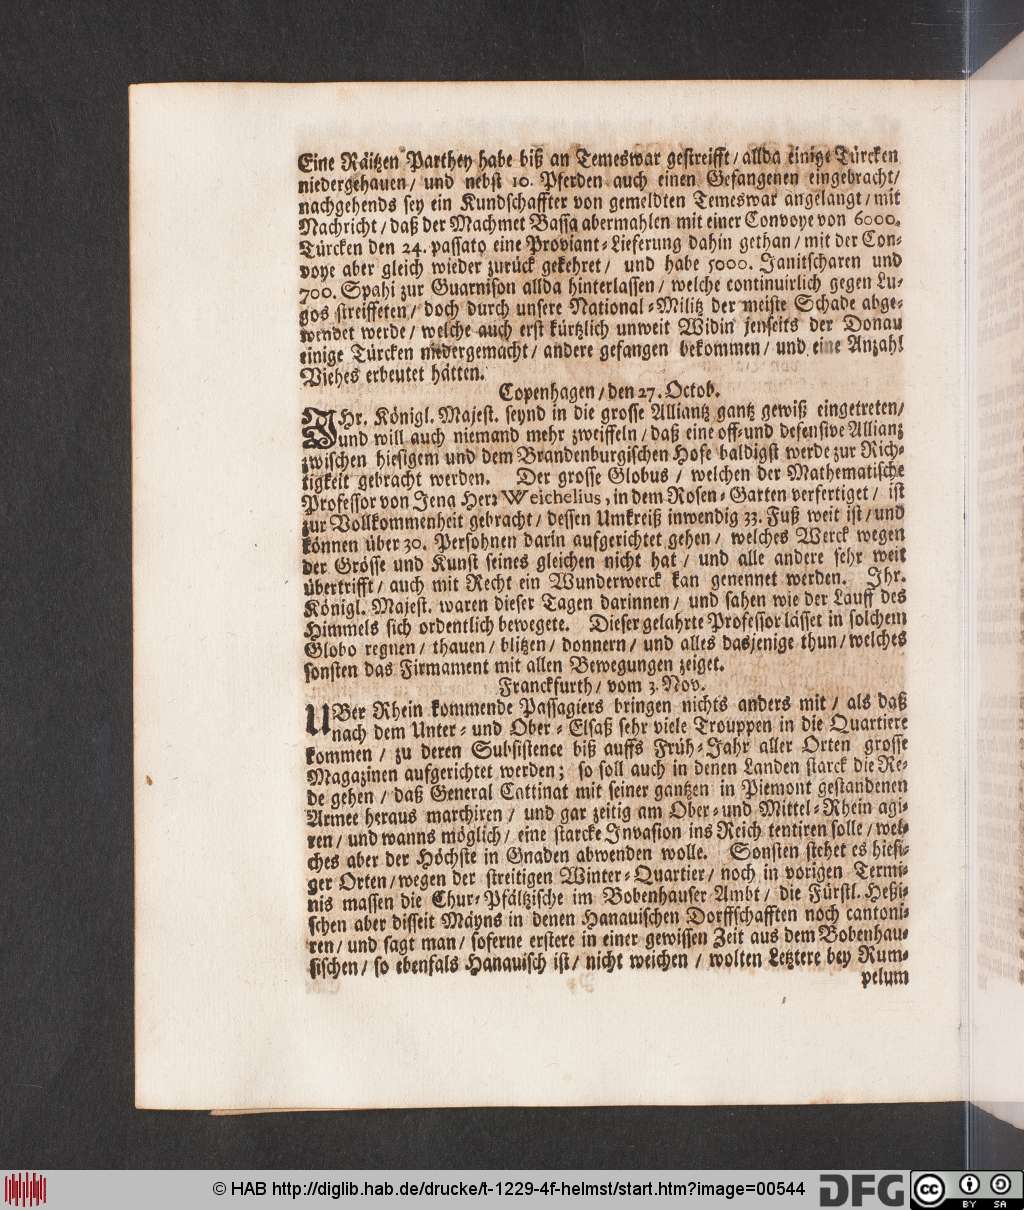 Eine Räitzen Parthey habe biß an Temeswar gestreifft / allda einige Türcken
niedergehauen / und nebst 10. Pferden auch einen Gefangenen eingebracht /
nachgehends sey ein Kundschaffter von gemeldten Temeswar angelangt / mit
Nachricht / daß der Machmet Bassa abermahlen mit einer Convoye von 6000.
Türcken den 24. passato eine Proviant-Lieferung dahin gethan / mit der Con-
voye aber gleich wieder zurück gekehret / und habe 5000. Janitscharen und
700. Spahi zur Guarnison allda hinterlassen / welche continuirlich gegen Lu-
gos streiffeten / doch durch unsere National-Militz der meiste Schade abge-
wendet werde / welche auch erst kürtzlich unweit Widin jenseits der Donau
einige Türcken niedergemacht / andere gefangen bekommen / und eine Anzahl
Viehes erbeutet hätten.
Copenhagen / den 27. Octob.
IHr. Königl. Majest. seynd in die grosse Alliantz gantz gewiß eingetreten /
und will auch niemand mehr zweiffeln / daß eine off- und defensive Allianz
zwischen hiesigem und dem Brandenburgischen Hofe baldigst werde zur Rich-
tigkeit gebracht werden. Der grosse Globus / welchen der Mathematische
Professor von Jena Herr Weichelius, in dem Rosen-Garten verfertiget / ist
zur Vollkommenheit gebracht / dessen Umkreiß inwendig 33. Fuß weit ist / und
können über 30. Persohnen darin aufgerichtet gehen / welches Werck wegen
der Grösse und Kunst seines gleichen nicht hat / und alle andere sehr weit
übertrifft / auch mit Recht ein Wunderwerck kan genennet werden. Ihr.
Königl. Majest. waren dieser Tagen darinnen / und sahen wie der Lauff des
Himmels sich ordentlich bewegete. Dieser gelahrte Professor lässet in solchem
Globo regnen / thauen / blitzen / donnern / und alles dasjenige thun / welches
sonsten das Firmament mit allen Bewegungen zeiget.
Franckfurth / vom 3. Nov.
UBer Rhein kommende Passagiers bringen nichts anders mit / als daß
nach dem Unter- und Ober-Elsaß sehr viele Trouppen in die Quartiere
kommen / zu deren Subsistence biß auffs Früh-Jahr aller Orten grosse
Magazinen aufgerichtet werden; so soll auch in denen Landen starck die Re-
de gehen / daß General Cattinat mit seiner gantzen in Piemont gestandenen
Armee heraus marchiren / und gar zeitig am Ober- und Mittel-Rhein agi-
ren / und wanns möglich / eine starcke Invasion ins Reich tentiren solle / wel-
ches aber der Höchste in Gnaden abwenden wolle. Sonsten stehet es hiesi-
ger Orten / wegen der streitigen Winter-Quartier / noch in vorigen Termi-
nis massen die Chur-Pfältzische im Bobenhauser Ambt / die Fürstl. Heßi-
schen aber disseit Mäyns in denen Hanauischen Dorffschafften noch cantoni-
ren / und sagt man / soferne erstere in einer gewissen Zeit aus dem Bobenhau-
sischen / so ebenfals Hanauisch ist / nicht weichen / wolten Letztere bey Rum-
pelum
© HAB http://diglib.hab.de/drucke/t-1229-4f-helmst/start.htm?image=00544
DFG
cc BY SA